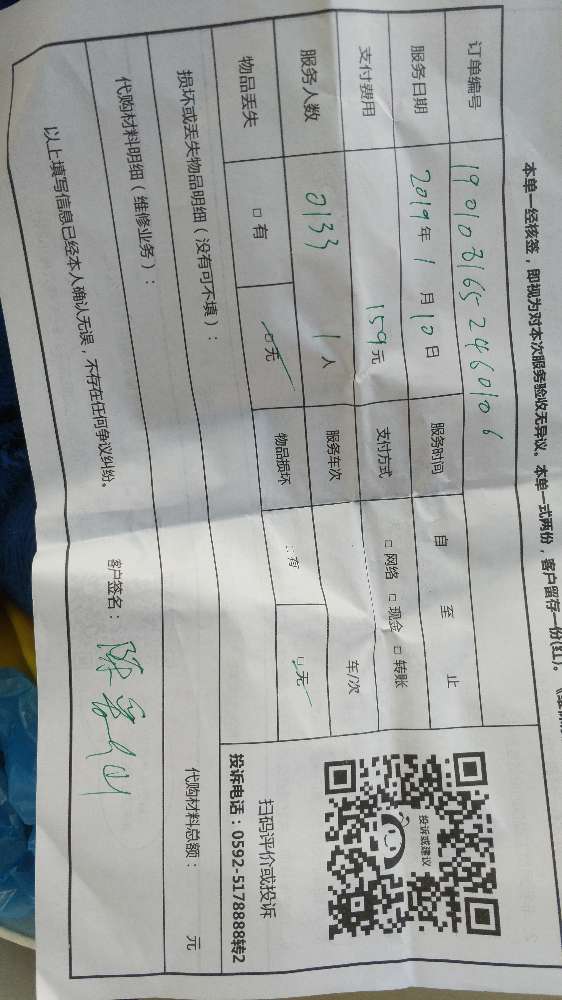 本单一经核签，即视为对本次服务验收无异议。本单一式两份，客户留存一份(红)。
订单编号 1901081652460106
服务日期 2019年1月10日 服务时间 自 至 止
支付费用 159元 支付方式 □网络 □现金 □转账
服务人数 0133 1人 服务车次 车/次
物品丢失 □有 □无 物品损坏 □有 □无
损坏或丢失物品明细（没有可不填）：
代购材料明细（维修业务）： 代购材料总额： 元
以上填写信息已经本人确认无误，不存在任何争议纠纷。 客户签名： 陈
投诉或建议
扫码评价或投诉
投诉电话：0592-5178888转2